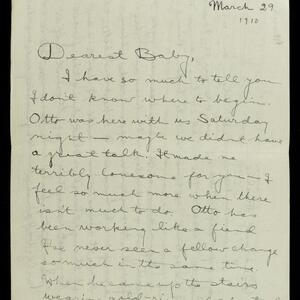 March 29
1910
Dearest Baby,
I have so much to tell you
I don't know where to begin.
Otto was here with us Saturday
night — maybe we didn't have
a great talk. It made me
terribly lonesome for you — I
feel so much more when there
isn't much to do. Otto has
been working like a fiend
I've never seen a fellow change
so much in the same time.
When he came up the stairs
wearing gold-